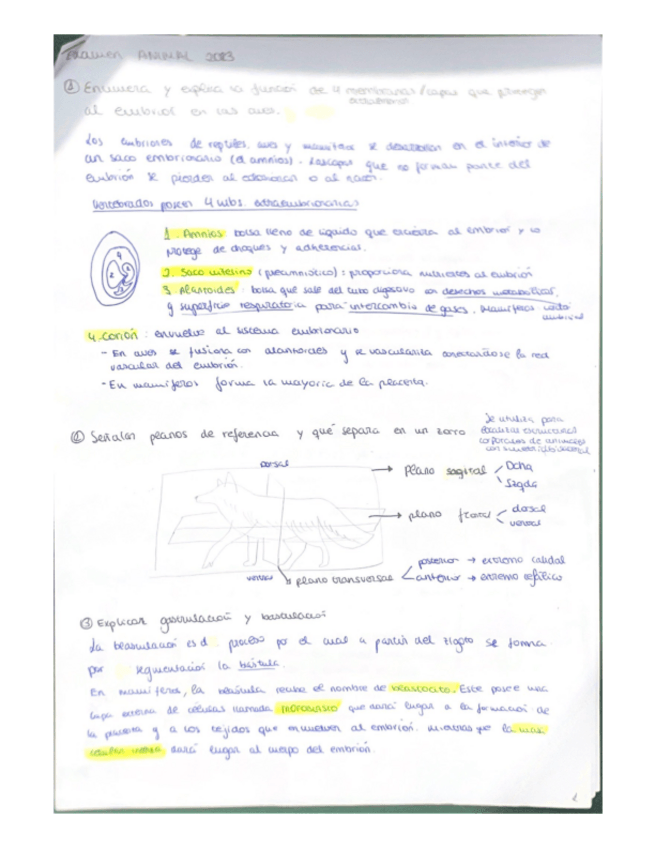 Examen ANIMAL 2023
① Enumera y explica la función de 4 membranas/capas que protegen
al embrión en las aves.
Los embriones de reptiles, aves y mamíferos se desarrollan en el interior de
un saco embrionario (el amnios). Las capas que no forman parte del
embrión se pierden al eclosionar o al nacer.
Vertebrados poseen 4 mbs. extraembrionarias
1. Amnios bolsa lleno de líquido que envuelve al embrión y lo
protege de choques y adherencias.
2. Saco vitelino : proporciona nutrientes al embrión
3. Alantoides : bolsa que sale del tubo digestivo con desechos metabólicos,
y superficie respiratoria para intercambio de gases. Mamíferos
4. Corión : envuelve al sistema embrionario
- En aves se fusiona con alantoides y se vasculariza conectándose la red
vascular del embrión.
- En mamíferos forma la mayoría de la placenta.
② Señalar planos de referencia y qué separa en un zorro
Se utiliza para
localizar estructuras
corporales de animales
con
dorsal
Plano sagital
Dcha
Izqda
plano frontal
dorsal
ventral
ventral
plano transversal
posterior → extremo caudal
anterior → extremo cefálico
③ Explicar gastrulación y blastulación
La blastulación es el proceso por el cual a partir del zigoto se forma
por segmentación la blástula.
En mamíferos, la blástula recibe el nombre de blastocito. Este posee una
capa externa de células llamada trofoblasto que dará lugar a la formación de
la placenta y a los tejidos que envuelven al embrión. mientras que la masa
celular interna dará lugar al cuerpo del embrión.